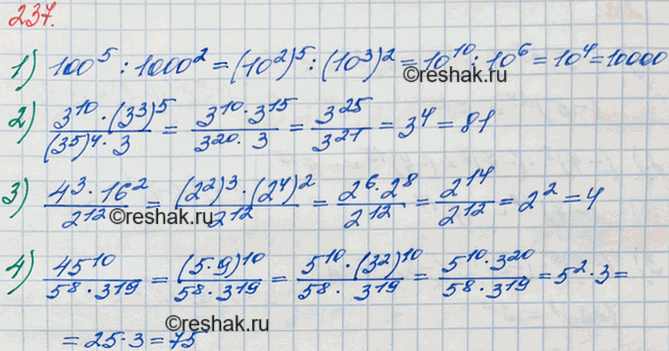 237.
1) 100⁵ : 1000² = (10²)⁵ : (10³)² = 10¹⁰ : 10⁶ = 10⁴ = 10000
©reshak.ru
2) (3¹⁰ · (3³)⁵)/((3⁵)⁴ · 3) = (3¹⁰ · 3¹⁵)/(3²⁰ · 3) = 3²⁵/3²¹ = 3⁴ = 81
3) (4³ · 16²)/2¹² = ((2²)³ · (2⁴)²)/2¹² = (2⁶ · 2⁸)/2¹² = 2¹⁴/2¹² = 2² = 4
4) 45¹⁰/(5⁸ · 3¹⁹) = (5·9)¹⁰/(5⁸ · 3¹⁹) = (5¹⁰ · (3²)¹⁰)/(5⁸ · 3¹⁹) = (5¹⁰ · 3²⁰)/(5⁸ · 3¹⁹) = 5² · 3 =
= 25 · 3 = 75
©reshak.ru